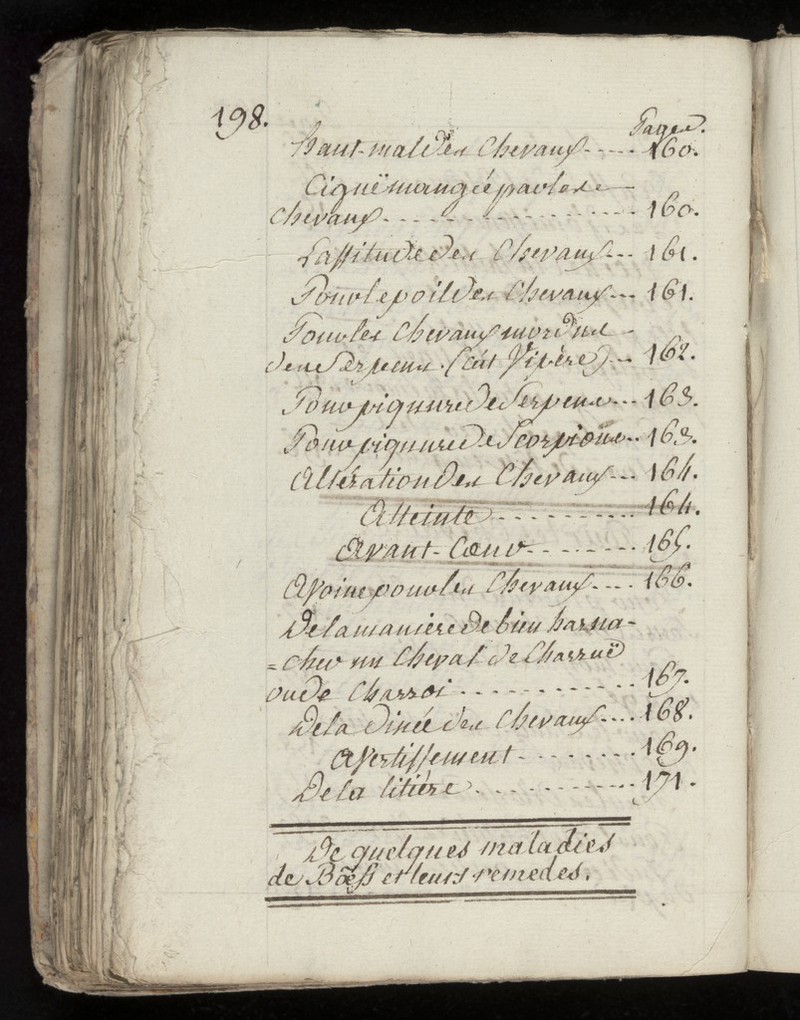 198.
Pages.
haut-mal des Chevaux----- 160.
Ciguë mangée par les
chevaux------------------- 160.
Lassitude des Chevaux--- 161.
Pour le poil des Chevaux--- 161.
Pour les Chevaux mordus
de Serpens. (C'est Vipère)--- 162.
Pour piqûure de Serpens--- 163.
Pour piqûure de Scorpions-- 163.
Altération des Chevaux--- 164.
Atteinte----------- 164.
Avant-Cœur-------- 165.
Avoine pour les Chevaux---- 166.
De la manière de bien harna-
=cher un Cheval de Charruë
ou de Charroi------------ 167.
De la Dinée des Chevaux---- 168.
Avertissement--------- 169.
De la litière------------ 171.
De quelques maladies
de Bœfs et leurs remedes.